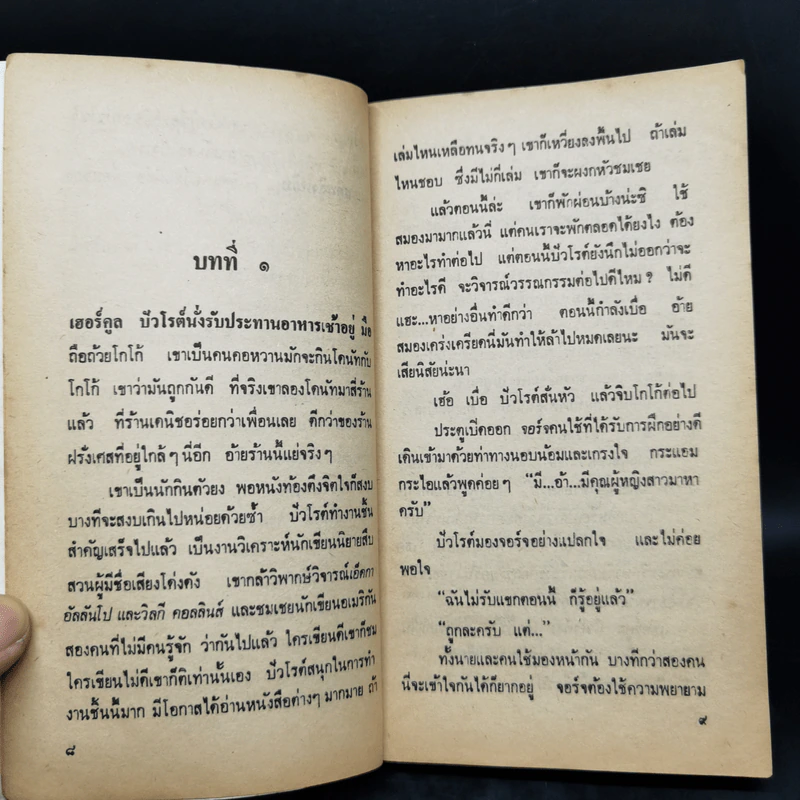 บทที่ ๑
เฮอร์คูล ปัวโรต์นั่งรับประทานอาหารเช้าอยู่ มือ
ถือถ้วยโกโก้ เขาเป็นคนคอหวานมักจะกินโดนัทกับ
โกโก้ เขาว่ามันถูกกันดี ที่จริงเขาลองโดนัทมาสี่ร้าน
แล้ว ที่ร้านเดนิชอร่อยกว่าเพื่อนเลย ดีกว่าของร้าน
ฝรั่งเศสที่อยู่ใกล้ๆ นี่อีก อ้ายร้านนี้แย่จริงๆ
เขาเป็นนักกินตัวยง พอหนังท้องตึงจิตใจก็สงบ
บางทีจะสงบเกินไปหน่อยด้วยซ้ำ ปัวโรต์ทำงานชิ้น
สำคัญเสร็จไปแล้ว เป็นงานวิเคราะห์นักเขียนนิยายสืบ
สวนผู้มีชื่อเสียงโด่งดัง เขากล้าวิพากษ์วิจารณ์เอ็ดกา
อัลลันโป และวิลกี คอลลินส์ และชมเชยนักเขียนอเมริกัน
สองคนที่ไม่มีคนรู้จัก ว่ากันไปแล้ว ใครเขียนดีเขาก็ชม
ใครเขียนไม่ดีเขาก็ติเท่านั้นเอง ปัวโรต์สนุกในการทำ
งานชิ้นนี้มาก มีโอกาสได้อ่านหนังสือต่างๆ มากมาย ถ้า
๘
เล่มไหนเหลือทนจริงๆ เขาก็เหวี่ยงลงพื้นไป ถ้าเล่ม
ไหนชอบ ซึ่งมีไม่กี่เล่ม เขาก็จะผงกหัวชมเชย
แล้วตอนนี้ล่ะ เขาก็พักผ่อนบ้างน่ะซิ ใช้
สมองมามากแล้วนี่ แต่คนเราจะพักตลอดได้ยังไง ต้อง
หาอะไรทำต่อไป แต่ตอนนี้ปัวโรต์ยังนึกไม่ออกว่าจะ
ทำอะไรดี จะวิจารณ์วรรณกรรมต่อไปดีไหม? ไม่ดี
แฮะ...หาอย่างอื่นทำดีกว่า ตอนนี้กำลังเบื่อ อ้าย
สมองเคร่งเครียดนี่มันทำให้ล้าไปหมดเลยนะ มันจะ
เสียนิสัยน่ะนา
เฮ้อ เบื่อ ปัวโรต์สั่นหัว แล้วจิบโกโก้ต่อไป
ประตูเปิดออก จอร์จคนใช้ที่ได้รับการฝึกอย่างดี
เดินเข้ามาด้วยท่าทางนอบน้อมและเกรงใจ กระแอม
กระไอแล้วพูดค่อยๆ “มี...อ้า...มีคุณผู้หญิงสาวมาหา
ครับ”
ปัวโรต์มองจอร์จอย่างแปลกใจ และไม่ค่อย
พอใจ
“ฉันไม่รับแขกตอนนี้ ก็รู้อยู่แล้ว”
“ถูกละครับ แต่...”
ทั้งนายและคนใช้มองหน้ากัน บางทีกว่าสองคน
นี่จะเข้าใจกันได้ก็ยากอยู่ จอร์จต้องใช้ความพยายาม
๙